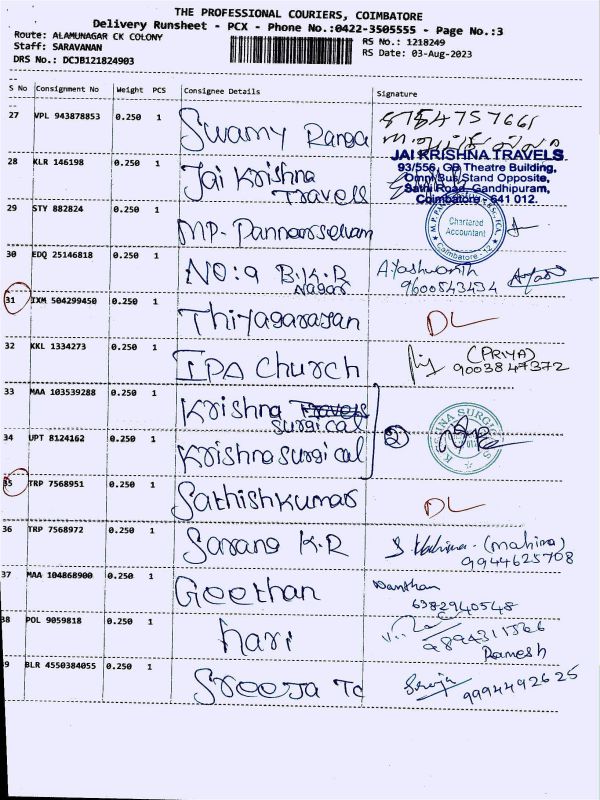 THE PROFESSIONAL COURIERS, COIMBATORE
Delivery Runsheet - PCX - Phone No.:0422-3505555 - Page No.:3
Route: ALAMUNAGAR CK COLONY
RS No.: 1218249
Staff: SARAVANAN
RS Date: 03-Aug-2023
DRS No.: DCJB121824903
S No Consignment No Weight PCS Consignee Details Signature
27 VPL 943878853 0.250 1
Swamy Ranga
28 KLR 146198 0.250 1
Jai Krishna
Travels
JAI KRISHNA TRAVELS
93/556, GP Theatre Building,
Omni Bus Stand Opposite,
Sathi Road, Gandhipuram,
Coimbatore - 641 012.
29 STY 882824 0.250 1
MP. Panneerselvam
Chartered
Accountant
Coimbatore - 12
30 EDQ 25146818 0.250 1
NO: 9 B.K.R
Nagar
9600543434
31 IXM 504299450 0.250 1
Thiyagarajan DL
32 KKL 1334273 0.250 1
IPA Church
(PRIYA)
9003847372
33 MAA 103539288 0.250 1
Krishna Travels
surgical
34 UPT 8124162 0.250 1
Krishna surgical
2
35 TRP 7568951 0.250 1
Sathishkumar DL
36 TRP 7568972 0.250 1
Sarang K.R
(Mahima)
9944625708
37 MAA 104868900 0.250 1
Geethan
6382940548
38 POL 9059818 0.250 1
hari
Ramesh
39 BLR 4550384055 0.250 1
Sreeja Tc
9994492625